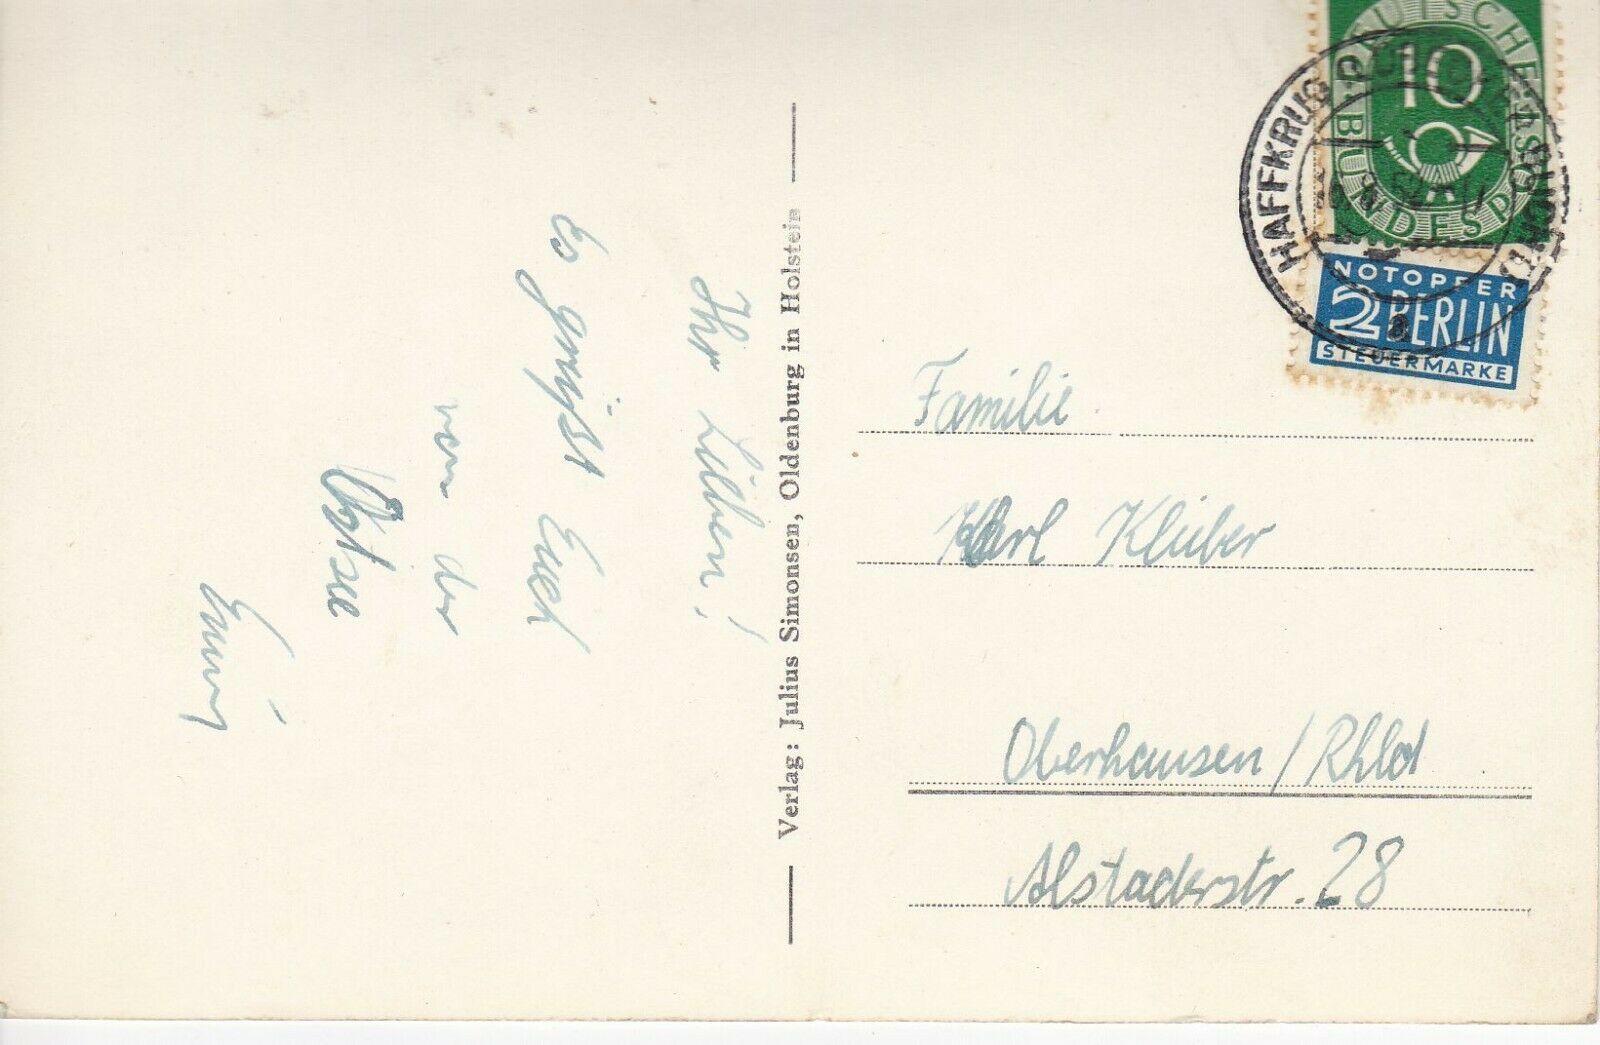 Ihr Lieben!
Es grüsst Euch
von der
Ostsee
Verlag: Julius Simonsen, Oldenburg in Holstein
DEUTSCHE BUNDESPOST
10
HAFFKRUG
a
NOTOPFER
2 BERLIN
STEUERMARKE
Familie
Karl Klüber
Oberhausen/Rhld
Alstaderstr. 28